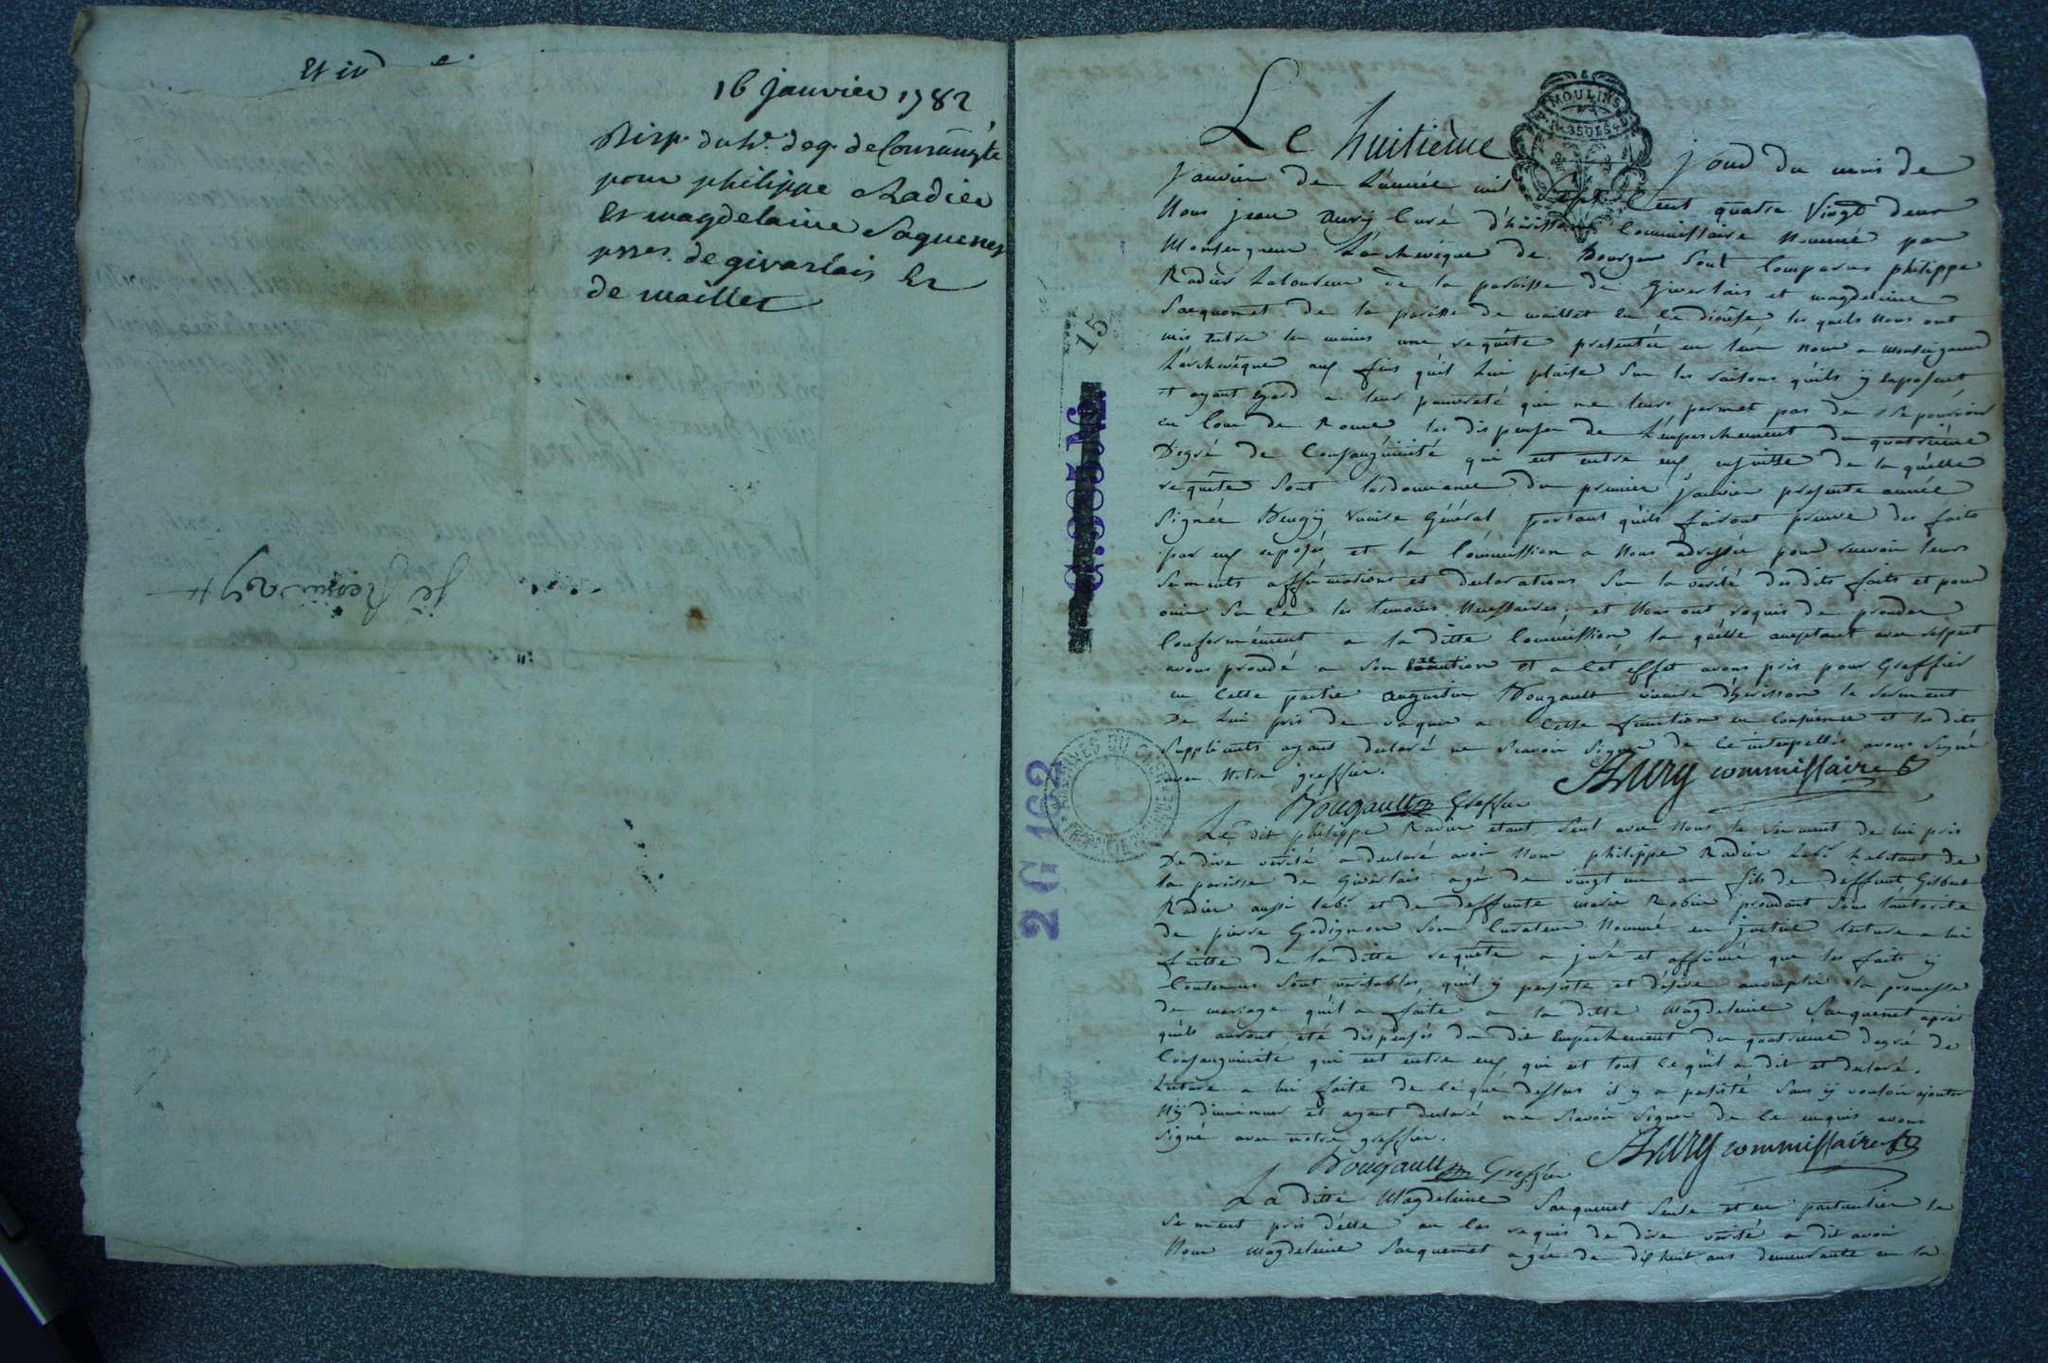 16 janvier 1782
Disp. du 4e. deg. de Consanguté
pour philippe Radier
Et magdelaine Saquenet
psses. de givarlais Et
de maillet
15
G. 985 N2.
2 G 162
ARCHIVES DU CHER
MOULINS
Le huitième jour du mois de
Janvier de L'année mil sept Cent quatre Vingt deux
Nous jean aury Curé d'hérisson Commissaire Nommé par
Monseigneur L'archevêque de Bourges sont Comparus philippe
Radier Laboureur de la paroisse de Giverlais et magdeleine
Saquenet de la paroisse de maillet en ce diocèse les quels Nous ont
mis entre les mains une requête présentée en leur nom a Monseigneur
L'archevêque aux fins qu'il Lui plaise sur les raisons qu'ils y Exposent
et ayant Egard a leur pauvreté qui ne leurs permet pas de se pourvoir
en Cour de Rome les dispenser de L'empeschement du quatrième
Degré de Consanguinité qui est entre eux ensuitte de laquelle
requête sont l'ordonnance du premier Janvier présente année
signée vicaire Général portant qu'ils fairont preuve des faits
par eux exposés et la Commission a Nous adressée pour recevoir leurs
serments affirmations et declarations sur la vérité desdits faits et pour
ouir sur ce les temoins Necessaires, et Nous ont requis de proceder
Conformément a la ditte Commission, la quelle acceptant avec respect
avons procédé a son Execution et a Cet effet avons pris pour Greffier
en Cette partie augustin Bougault vicaire d'hérisson le serment
De Lui pris de vaquer a Cette fonction en Conscience et les dits
suppliants ayant declaré ne scavoir signer de ce interpellés avons signé
avec Notre greffier.
Aury commissaire
Bougault Greffier
Le dit philippe Radier etant seul avec Nous le serment de lui pris
De dire vérité a declaré avoir Nom philippe Radier Labr. habitant de
la paroisse de Giverlais agé de vingt un an fils de deffunt Gilbert
Radier aussi labr. et de deffunte marie Robin procedant sous l'autorité
de pierre Godignon son Curateur Nommé en justice lecture a lui
faitte de la ditte requête a juré et affirmé que les faits y
Contenus sont véritables, qu'il y persiste et désire accomplir la promesse
de mariage qu'il a faite a la ditte Magdeleine Saquenet après
qu'ils auront été dispensés du dit Empêchement du quatrieme degré de
Consanguinité qui est entre eux, qui est tout ce qu'il a dit et declaré.
Lecture a lui faite de ce que dessus il y a persisté sans y vouloir ajouter
Ny diminuer et ayant declaré ne scavoir signer de ce enquis avons
signé avec notre greffier.
Aury commissaire
Bougault Greffier
La ditte Magdeleine Saquenet seule et en particulier le
serment pris d'elle au Cas requis de dire vérité a dit avoir
Nom Magdeleine Saquenet agée de dix huit ans demeurante en la